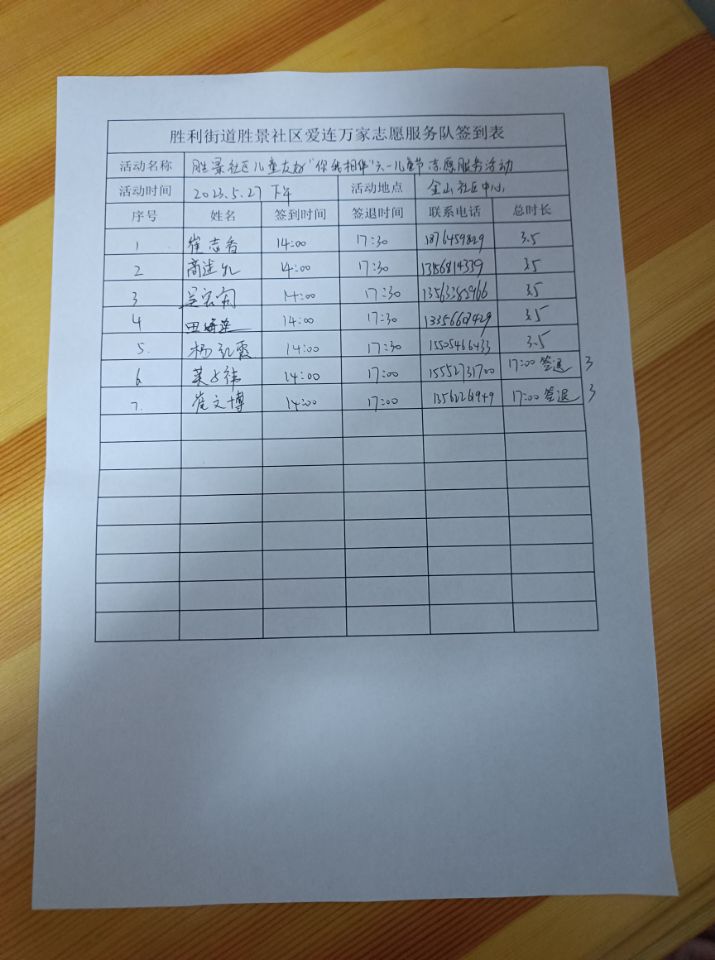 胜利街道胜景社区爱连万家志愿服务队签到表
活动名称 胜景社区儿童友好"你我相伴"六一儿童节志愿服务活动
活动时间 2023.5.27 下午 活动地点 金山社区中心
序号 姓名 签到时间 签退时间 联系电话 总时长
1 崔志香 14:00 17:30 3.5
2 高连 14:00 17:30 3.5
3 14:00 17:30 3.5
4 田 14:00 17:30 3.5
5. 杨红霞 14:00 17:30 15505466433 3.5
6. 14:00 17:00 15552731700 17:00 签退 3
7. 崔文博 14:00 17:00 17:00 签退 3